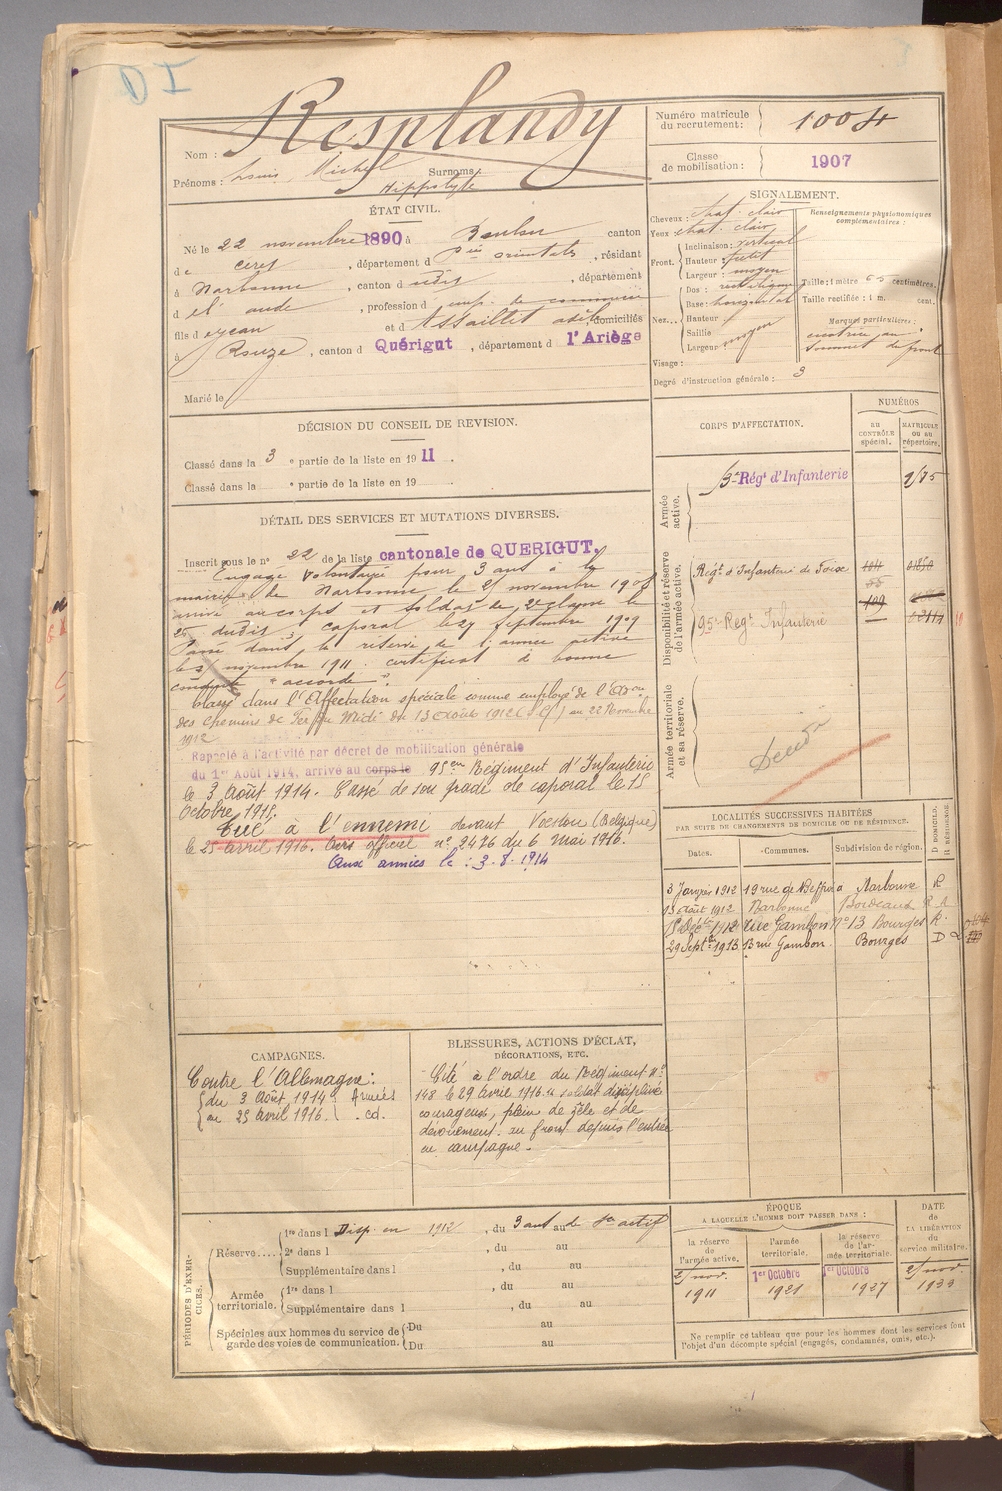 Resplandy
Nom :
Prénoms : Louis Michel Surnoms
Hippolyte
Numéro matricule
du recrutement : 1004
Classe
de mobilisation : 1907
ÉTAT CIVIL.
Né le 22 novembre 1890 à canton
de ceret , département d Pées orientales , résidant
à Narbonne , canton d udit , département
d el aude , profession d emp. de commerce
fils d e jean et d Assaillit , domiciliés
à Rouze , canton d Quérigut , département d l'Ariège
Marié le
SIGNALEMENT.
Cheveux : chat. clair
Yeux chat. clair
Front. Inclinaison : vertical
Hauteur : petit
Largeur : moyen
Nez... Dos : rectiligne
Base : horizontal
Hauteur
Saillie
Largeur moyen
Visage :
Degré d'instruction générale : 3
Renseignements physionomiques
complémentaires :
Taille : 1 mètre 65 centimètres.
Taille rectifiée : 1 m. cent.
Marques particulières :
cicatrice au
sommet du front
DÉCISION DU CONSEIL DE REVISION.
Classé dans la 3e partie de la liste en 1911 .
Classé dans la e partie de la liste en 19 .
DÉTAIL DES SERVICES ET MUTATIONS DIVERSES.
Inscrit sous le n° 22 de la liste cantonale de QUERIGUT.
Engagé volontaire pour 3 ans à la
mairie de Narbonne le 21 novembre 1908
arrivé au corps et soldat de 2e classe le
25 dudit caporal le 29 septembre 1909
Passé dans la réserve de l'armée active
le 21 novembre 1911. certificat de bonne
conduite "accordé".
Classé dans l'Affectation spéciale comme employé de l'Adon
des chemins de Fer du Midi du 13 Août 1912 au 22 Novembre
1912
Rappelé à l'activité par décret de mobilisation générale
du 1er Août 1914, arrivé au corps le 95em Régiment d'Infanterie
le 3 Août 1914. Cassé de son grade de caporal le 15
Octobre 1915.
Tué à l'ennemi devant (Belgique)
le 25 avril 1916. Avis officiel n° 2476 du 6 Mai 1916.
Aux armées le : 3-8-1914
CORPS D'AFFECTATION.
NUMÉROS
au
CONTRÔLE
spécial.
MATRICULE
OU AU
répertoire.
Armée
active.
Régt d'Infanterie
Disponibilité et réserve
de l'armée active.
Régt d'Infanterie de Foix
95e Regt Infanterie
109
Armée territoriale
et sa réserve.
LOCALITÉS SUCCESSIVES HABITÉES
PAR SUITE DE CHANGEMENTS DE DOMICILE OU DE RÉSIDENCE.
Dates. Communes. Subdivision de région. D DOMICILE. R RÉSIDENCE.
3 Janvier 1912 19 rue de Narbonne R
13 Août 1912 Narbonne Bordeaux R
1912 rue Gambon N° 13 Bourges R.
29 Septbre 1913 13 rue Gambon. Bourges D
CAMPAGNES.
Contre l'Allemagne :
du 3 Août 1914 Armées
au 25 Avril 1916. cd.
BLESSURES, ACTIONS D'ÉCLAT,
DÉCORATIONS, ETC.
Cité à l'ordre du Régiment n°
148 le 29 avril 1916. « soldat discipliné
courageux, plein de zèle et de
dévouement. au front depuis l'entrée
en campagne.
PÉRIODES D'EXERCICES.
Réserve.... 1re dans l Disp. en 1912 , du 3 ans au de Sce actif
2e dans l , du au
Supplémentaire dans l , du au
Armée
territoriale. 1re dans l , du au
Supplémentaire dans l , du au
Spéciales aux hommes du service de
garde des voies de communication. Du au
Du au
ÉPOQUE
A LAQUELLE L'HOMME DOIT PASSER DANS :
la réserve
de
l'armée active.
l'armée
territoriale.
la réserve
de l'armée territoriale.
DATE
de
LA LIBÉRATION
du
service militaire.
21 nov. 1er Octobre 1er Octobre 21 nov.
1911 1921 1927 1933
Ne remplir ce tableau que pour les hommes dont les services font
l'objet d'un décompte spécial (engagés, condamnés, omis, etc.).